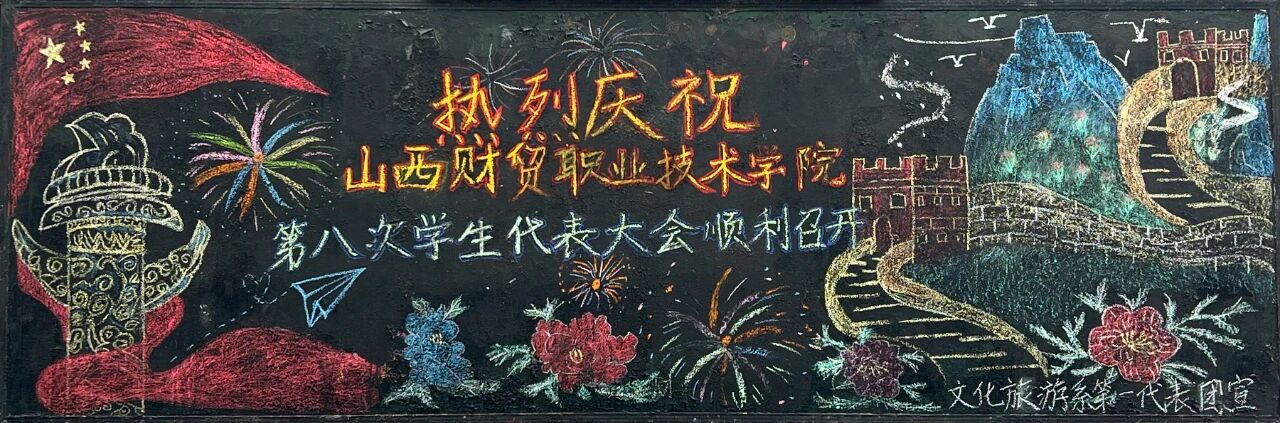 热烈庆祝
山西财贸职业技术学院
第八次学生代表大会顺利召开
文化旅游系第一代表团宣